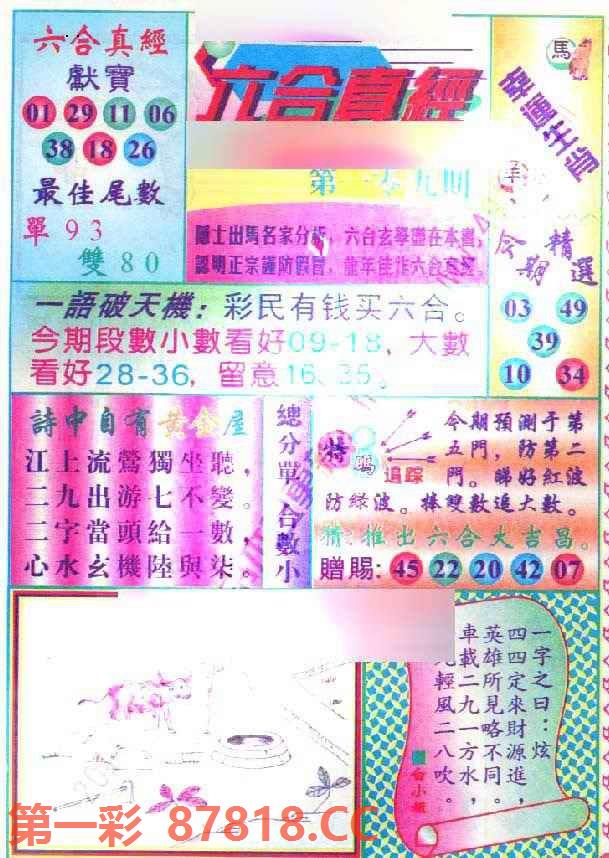 六合真經
獻寶
01 29 11 06
38 18 26
最佳尾數
單 93
雙 80
六合真經
第一零九期
隱士出馬名家分析，六合玄學盡在本書，
認明正宗謹防假冒，龍年佳作六合真經。
馬
幸運生肖
羊
今期精選
03 49
39
10 34
一語破天機：彩民有钱买六合。
今期段數小數看好09-18，大數
看好28-36，留意16.35。
詩中自有黃金屋
江上流鶯獨坐聽，
二九出游七不變。
二字當頭給一數，
心水玄機陸與柒。
總分單
合數小
特碼
追踪
今期預測于第
五門，防第二
門。睇好紅波
防綠波。捧雙數追大數。
精推出六合大吉昌。
贈賜：45 22 20 42 07
一字之曰：炫
四四定來財源進，
英雄所見略不同。
車載二九一方水，
輕風二八吹。
第一彩 87818.CC